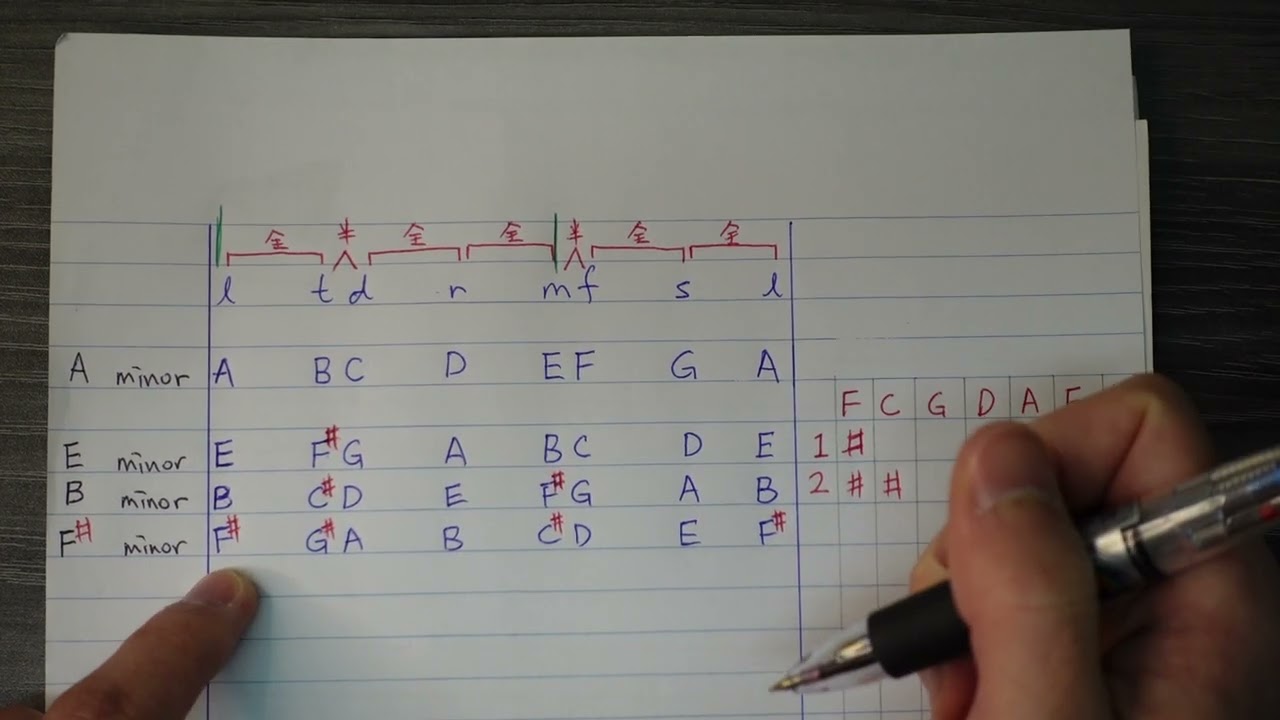 全 半 全 全 半 全 全
l t d r m f s l
A minor A B C D E F G A
F C G D A
E minor E F# G A B C D E 1 #
B minor B C# D E F# G A B 2 # #
F# minor F# G# A B C# D E F#